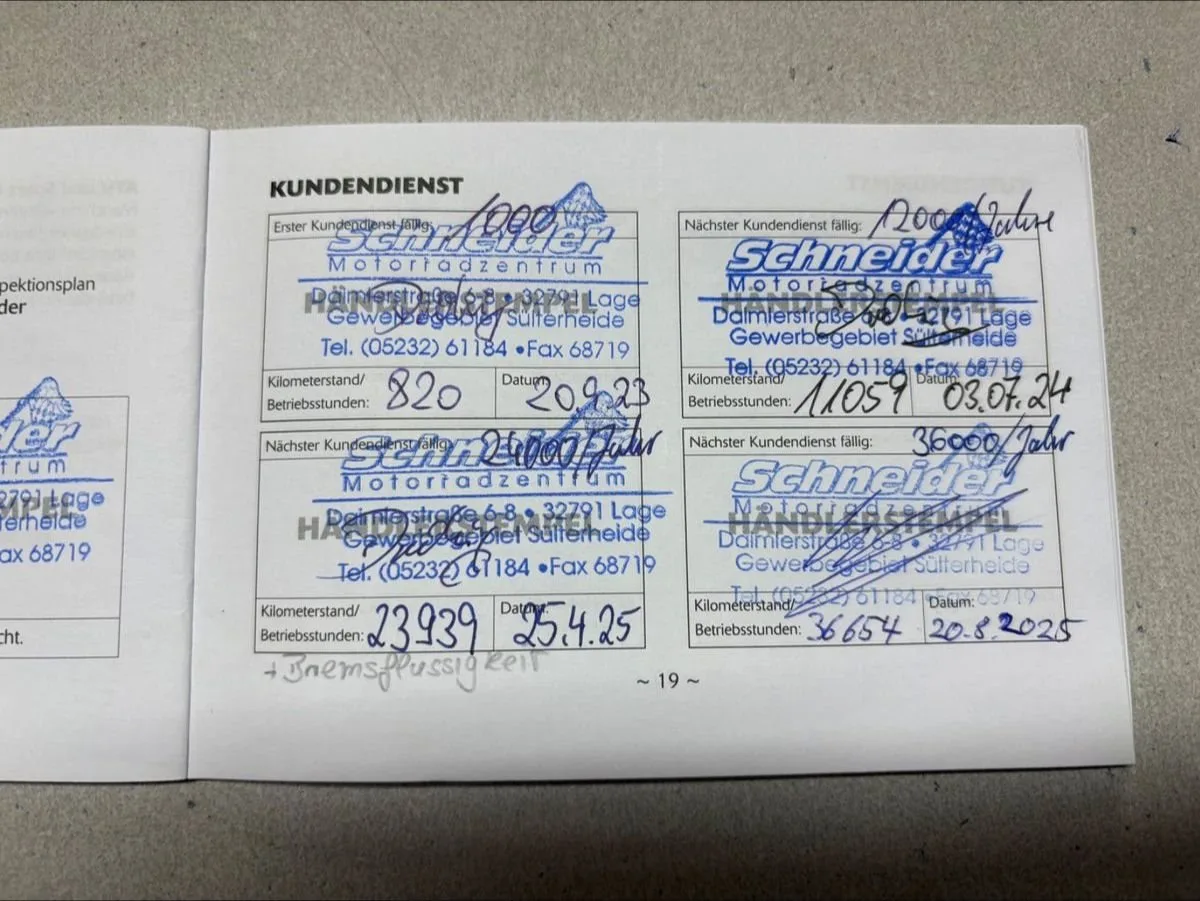 pektionsplan
der
trum
2791 Lage
terheide
ax 68719
cht.
KUNDENDIENST
Erster Kundendienst fällig: 1000
Schneider
Motorradzentrum
HÄNDLERSTEMPEL
Daimlerstraße 6-8 • 32791 Lage
Gewerbegebiet Sülterheide
Tel. (05232) 61184 • Fax 68719
Kilometerstand/
Betriebsstunden: 820
Datum: 20.9.23
Nächster Kundendienst fällig: 12000/Jahre
Schneider
Motorradzentrum
HÄNDLERSTEMPEL
Daimlerstraße 6-8 • 32791 Lage
Gewerbegebiet Sülterheide
Tel. (05232) 61184 • Fax 68719
Kilometerstand/
Betriebsstunden: 11059
Datum: 03.07.24
Nächster Kundendienst fällig: 24000/Jahr
Schneider
Motorradzentrum
HÄNDLERSTEMPEL
Daimlerstraße 6-8 • 32791 Lage
Gewerbegebiet Sülterheide
Tel. (05232) 61184 • Fax 68719
Kilometerstand/
Betriebsstunden: 23939
Datum: 25.4.25
+ Bremsflüssigkeit
Nächster Kundendienst fällig: 36000/Jahr
Schneider
Motorradzentrum
HÄNDLERSTEMPEL
Daimlerstraße 6-8 • 32791 Lage
Gewerbegebiet Sülterheide
Tel. (05232) 61184 • Fax 68719
Kilometerstand/
Betriebsstunden: 36654
Datum: 20.8.2025
~ 19 ~